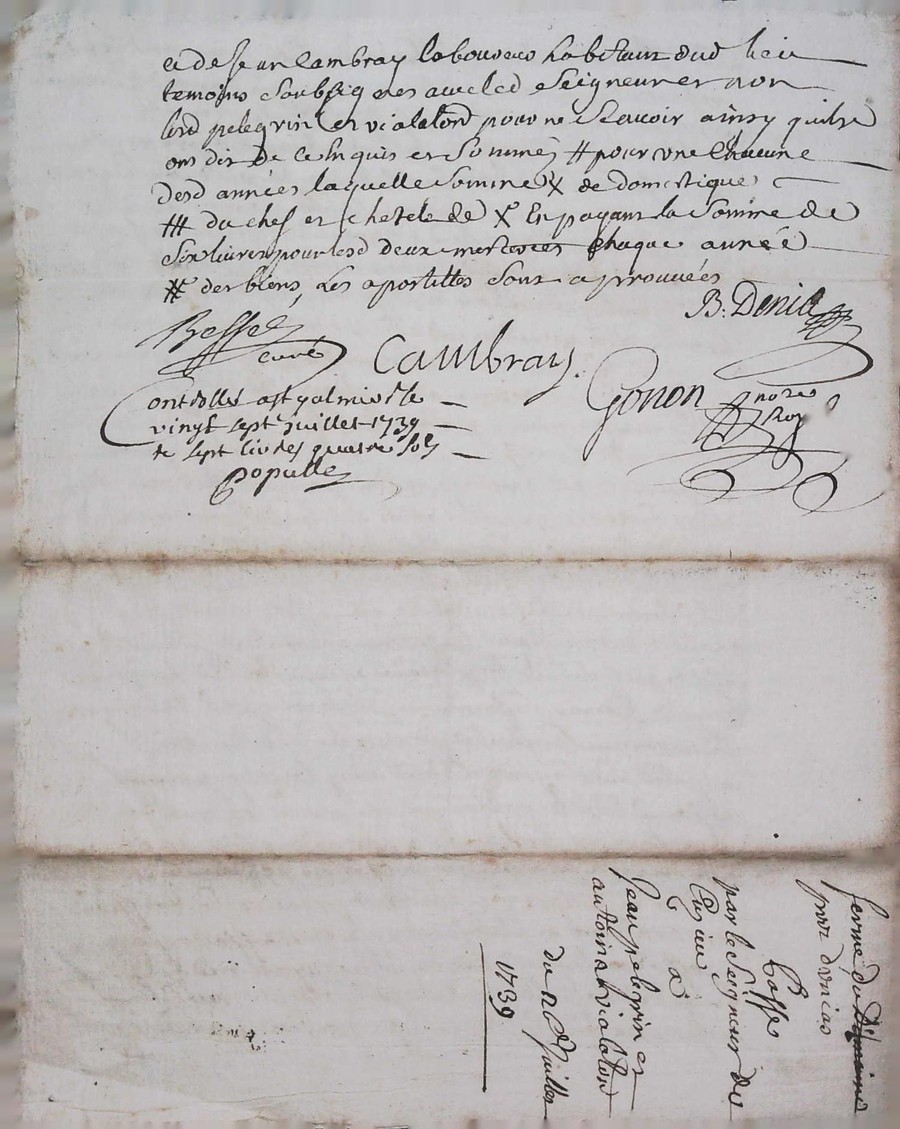 et de Jean Cambray laboureur habitant dud lieu
temoins soubsignes avec led Seigneur et non
lesd pelegrin et vialaton pour ne Scavoir ainsy quils
ont dit de ce Enquis et Sommés # pour une Chacune
desd années laquelle Somme X de domestique
## du chef et chetele de X En payant la Somme de
Six livres pour lesd deux chaque année
# des biens, Les apostilles Sont aprouvées
B: Denis
Besses
curé
Cambray.
Gonon nore
Roy
Controllé a St galmier le
vingt sept juillet 1739
sept livres quatre sols
populle
ferme du Domaine
pour
Cosse
par le Seigneur du
Cuzieu
a
Jean pelegrin et
antoine vialaton
du Juillet
1739